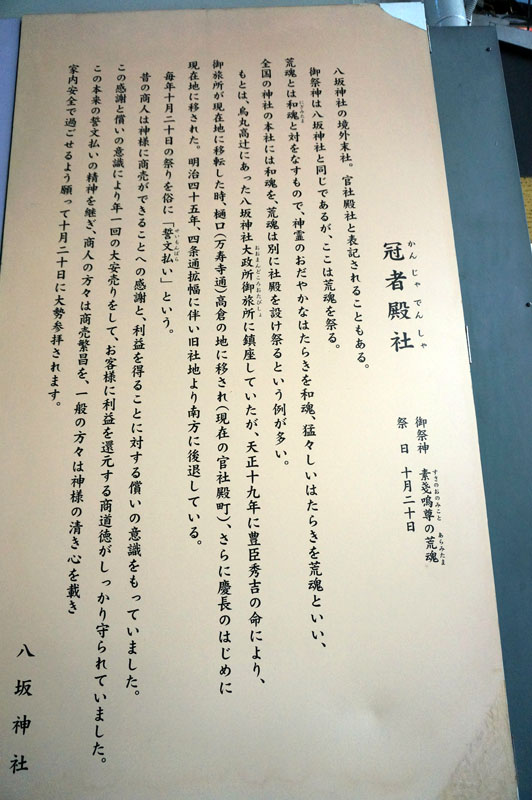 冠者殿社
かんじゃでんしゃ
御祭神 素戔嗚尊の荒魂
すさのおのみこと あらみたま
祭 日 十月二十日
八坂神社の境外末社。官社殿社と表記されることもある。
御祭神は八坂神社と同じであるが、ここは荒魂を祭る。
荒魂とは和魂と対をなすもので、神霊のおだやかなはたらきを和魂、猛々しいはたらきを荒魂といい、
にぎみたま
全国の神社の本社には和魂を、荒魂は別に社殿を設け祭るという例が多い。
もとは、烏丸高辻にあった八坂神社大政所御旅所に鎮座していたが、天正十九年に豊臣秀吉の命により、
おおまんどころおたびしょ
御旅所が現在地に移転した時、樋口(万寿寺通)高倉の地に移され(現在の官社殿町)、さらに慶長のはじめに
現在地に移された。明治四十五年、四条通拡幅に伴い旧社地より南方に後退している。
毎年十月二十日の祭りを俗に「誓文払い」という。
せいもんばらい
昔の商人は神様に商売ができることへの感謝と、利益を得ることに対する償いの意識をもっていました。
この感謝と償いの意識により年一回の大安売りをして、お客様に利益を還元する商道徳がしっかり守られていました。
この本来の誓文払いの精神を継ぎ、商人の方々は商売繁昌を、一般の方々は神様の清き心を戴き
家内安全で過ごせるよう願って十月二十日に大勢参拝されます。
八坂神社